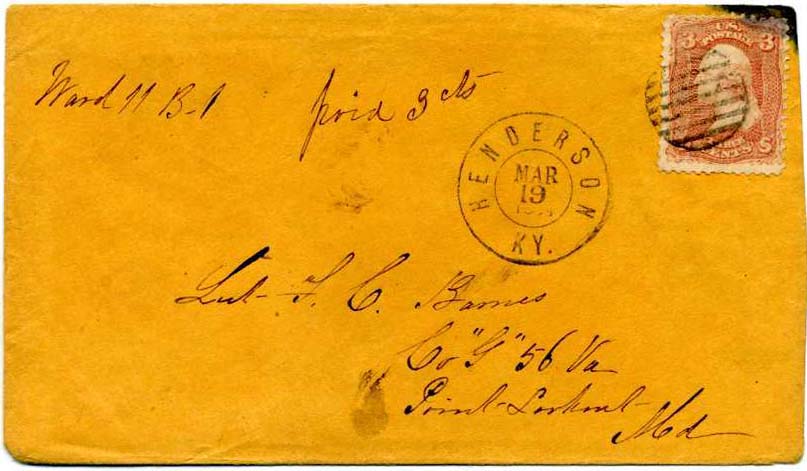 Ward 11 B-1 paid 3 cts
3 U.S. 3
POSTAGE
CENTS
HENDERSON
MAR
19
KY.
Lut- F. C. Barnes
Co "G" 56 Va
Point-Lookout-
Md